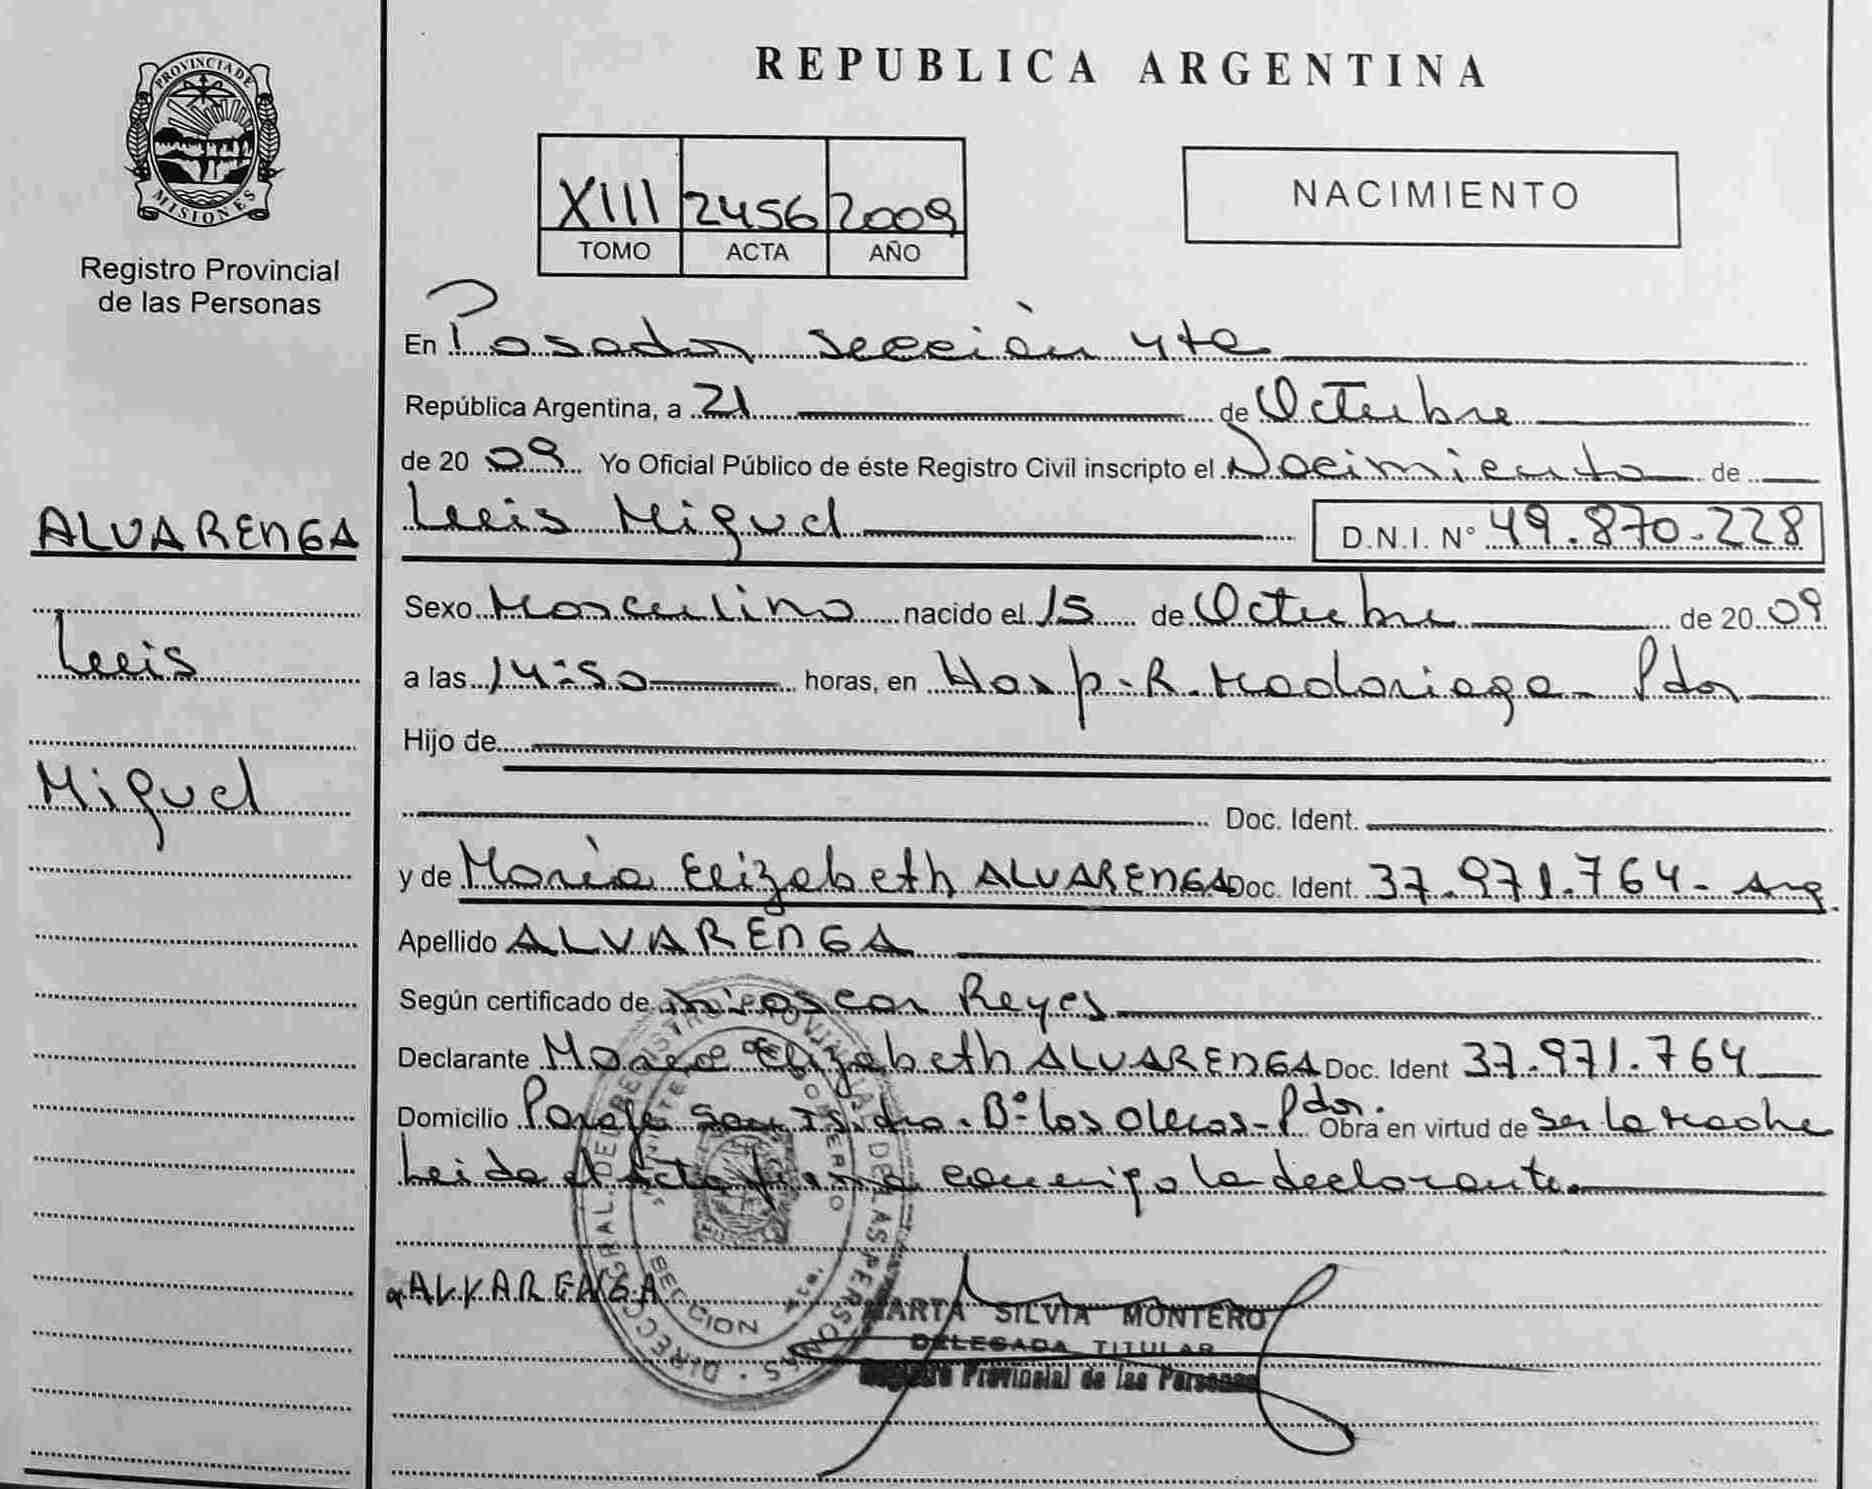 PROVINCIA DE
MISIONES
Registro Provincial
de las Personas
ALVARENGA
Luis
Miguel
REPUBLICA ARGENTINA
XIII 2456 2009
TOMO ACTA AÑO
NACIMIENTO
En Posadas sección 4ta
República Argentina, a 21 de Octubre
de 20 09 Yo Oficial Público de éste Registro Civil inscripto el Nacimiento de
Luis Miguel D.N.I. N° 49.870.228
Sexo Masculino nacido el 15 de Octubre de 20 09
a las 14:50 horas, en Hosp. R. Madariaga - Pdas
Hijo de
Doc. Ident.
y de María Elizabeth ALVARENGA Doc. Ident. 37.971.764 - Arg
Apellido ALVARENGA
Según certificado de Oscar Reyes
Declarante María Elizabeth ALVARENGA Doc. Ident 37.971.764
Domicilio San Isidro. B° los - Pdas. Obra en virtud de ser la Madre
Leida el acta firma conmigo la declarante.
ALVARENGA
MARTA SILVIA MONTERO
DELEGADA TITULAR
Registro Provincial de las Personas
DIRECC GRAL. DEL REGISTRO PROVINCIAL DE LAS PERSONAS
MINISTERIO DE GOBIERNO
SECCION 4ta.